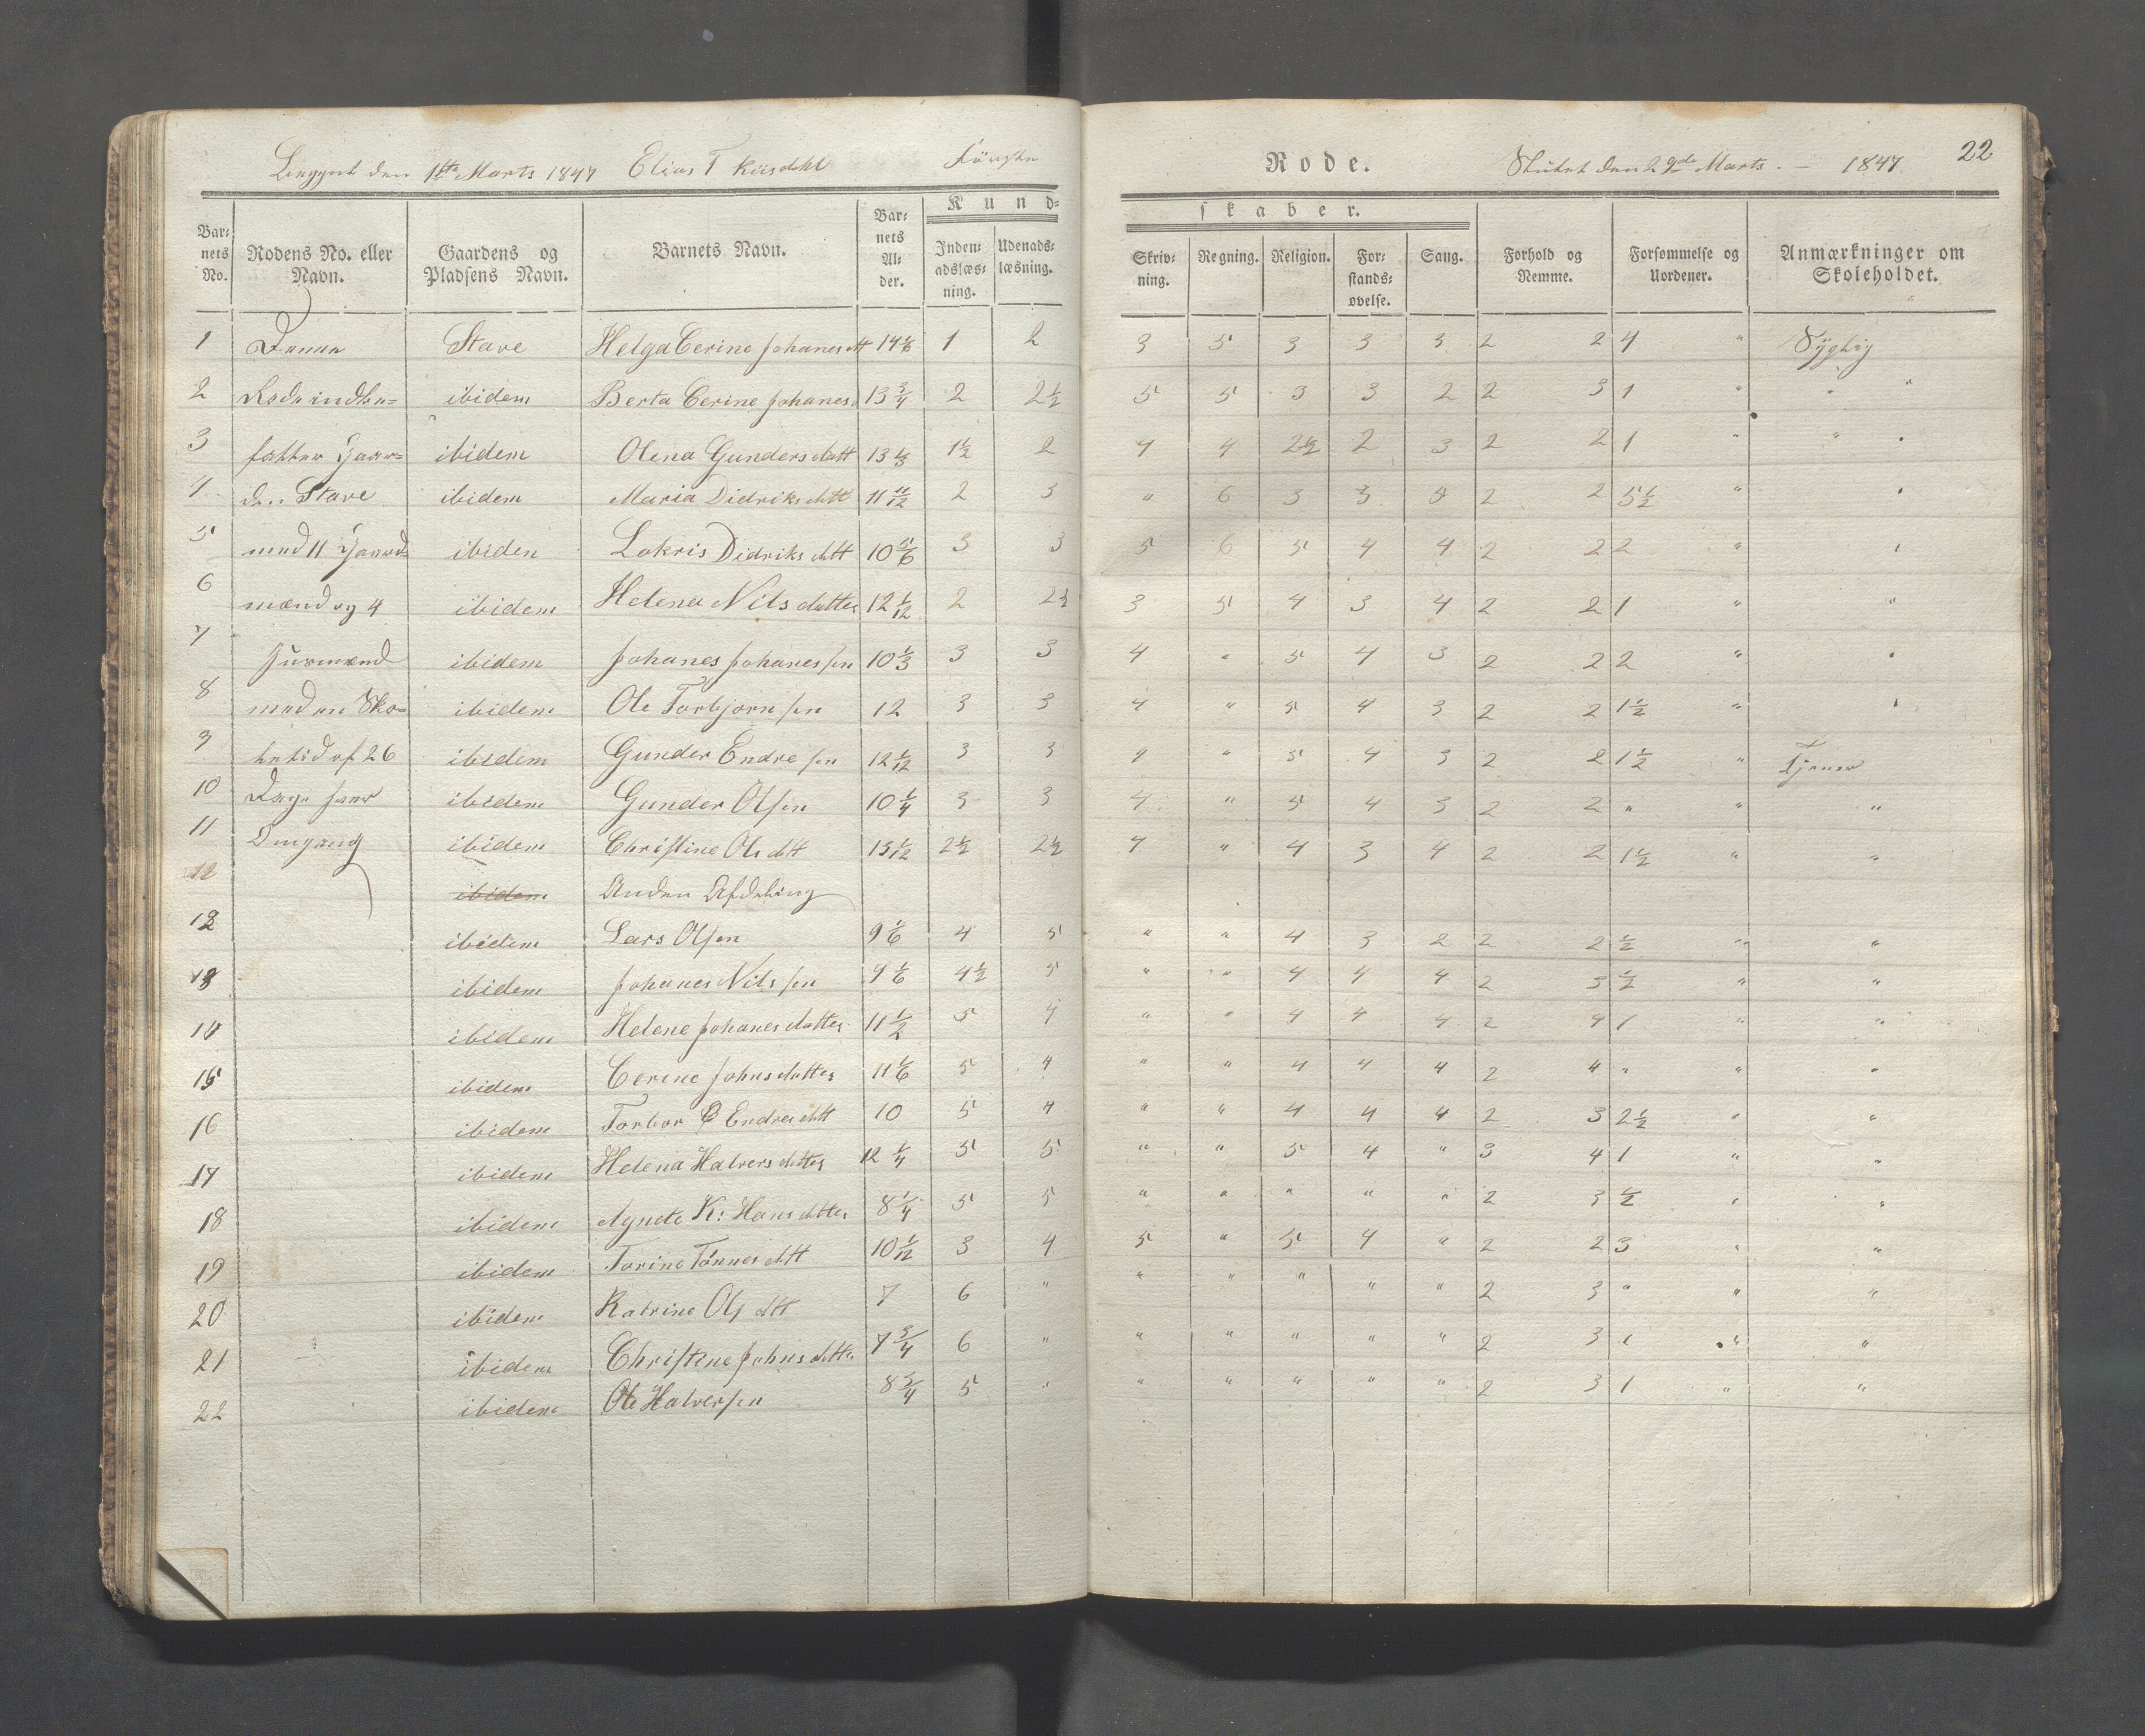 Begynt den 1ste Marts 1847 Elias T Första
Rode. Slutet den 29de Marts. – 1847 22
Kund-
skaber.
Bar-
nets
No. Rodens No. eller
Navn. Gaardens og
Pladsens Navn. Barnets Navn. Bar-
nets
Al-
der. Inden-
adslæs-
ning. Udenads-
læsning. Skriv-
ning. Regning. Religion. For-
stands-
øvelse. Sang. Forhold og
Nemme. Forsømmelse og
Uordener. Anmærkninger om
Skoleholdet.
1 Denne Stave Helga Cerine Johanes dtt 14 1/6 1 2 3 5 3 3 3 2 2 4 " Syglig
2 Rode indbe= ibidem Berta Cerine Johanes 13 3/4 2 2 1/2 5 5 3 3 2 2 3 1 " " "
3 fatter Gaar= ibidem Olena Gundersdatt 13 1/3 1 1/2 2 4 4 2 1/2 2 3 2 2 1 " " "
4 den Stave ibidem Maria Didriks dtt 11 11/12 2 3 " 6 3 3 3 2 2 5 1/2 " "
5 med 11 Gaard ibiden Lokris Didriks dtt 10 5/6 3 3 5 6 5 4 4 2 2 2 " "
6 mænd og 4 ibidem Helena Nils datter 12 1/12 2 2 1/2 3 5 4 3 4 2 2 1 " "
7 Huusmænd ibidem Johanes Johanessen 10 1/3 3 3 4 " 5 4 3 2 2 2 " "
8 med en Sko= ibidem Ole Torbjornsen 12 3 3 4 " 5 4 3 2 2 1 1/2 " "
9 letid af 26 ibidem Gunder Endresen 12 1/12 3 3 4 " 5 4 3 2 2 1 1/2 " Tjener
10 Dage hver ibidem Gunder Olsen 10 1/4 3 3 4 " 5 4 3 2 2 " " "
11 Omgang ibidem Christine Ols dtt 13 1/12 2 1/2 2 1/2 4 " 4 3 4 2 2 1 1/2 " "
12 ibidem Anden Afdeling
12 ibidem Lars Olsen 9 1/6 4 5 " " 4 3 2 2 2 1/2 " "
13 ibidem Johanes Nilssen 9 1/6 4 1/2 5 " " 4 4 4 2 3 1/2 " "
14 ibidem Helene Johanesdatter 11 1/2 5 4 " " 4 4 4 2 4 1 " "
15 ibidem Cerene Johnsdatter 11 1/6 5 4 " " 4 4 4 2 4 " " "
16 ibidem Torbor E Endres dtt 10 5 4 " " 4 4 4 2 3 2 1/2 " "
17 ibidem Helena Halversdatter 12 1/4 5 5 " " 5 4 " 3 4 1 " "
18 ibidem Agnete K: Hansdtter 8 1/4 5 5 " " " " " 2 3 1/2 " "
19 ibidem Torine Tönnes dtt 10 1/12 3 4 5 " 5 4 " 2 2 3 " "
20 ibidem Katrine Ols dtt 7 6 " " " " " " 2 3 " " "
21 ibidem Christine Johnsdtter 7 3/4 6 " " " " " " 2 3 1 " "
22 ibidem Ole Halversen 8 3/4 5 " " " " " " 2 3 1 " "